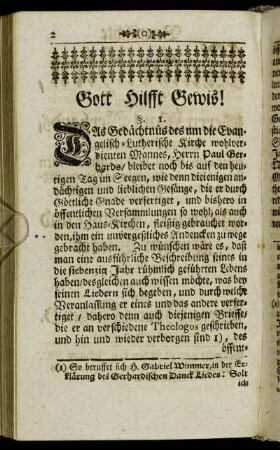 2
Gott Hilfft Gewis!
§. 1.
DAs Gedächtnüs des um die Evan-
gelisch-Lutherische Kirche wohlver-
dienten Mannes, Herrn Paul Ger-
hards/ bleibet noch bis auf den heu-
tigen Tag im Seegen, wie denn diejenigen an-
dächtigen und lieblichen Gesänge, die er durch
Göttliche Gnade verfertiget, und bishero in
öffentlichen Versammlungen so wohl, als auch
in den Haus-Kirchen, fleißig gebrauchet wor-
den, ihm ein unvergeßliches Andencken zu wege
gebracht haben. Zu wünschen wäre es, daß
man eine ausführliche Beschreibung seines in
die siebenzig Jahr rühmlich geführten Lebens
haben/ desgleichen auch wissen möchte, was bey
seinen Liedern sich begeben, und durch welche
Veranlassung er eines und das andere verfer-
tiget/ dahero denn auch diejenigen Briefe,
die er an verschiedene Theologos geschrieben,
und hin und wieder verborgen sind 1), des
öffent-
(1) So beruffet sich H. Gabriel Wimmer, in der Er-
klärung des Gerhardischen Danck Liedes: Solt
ich